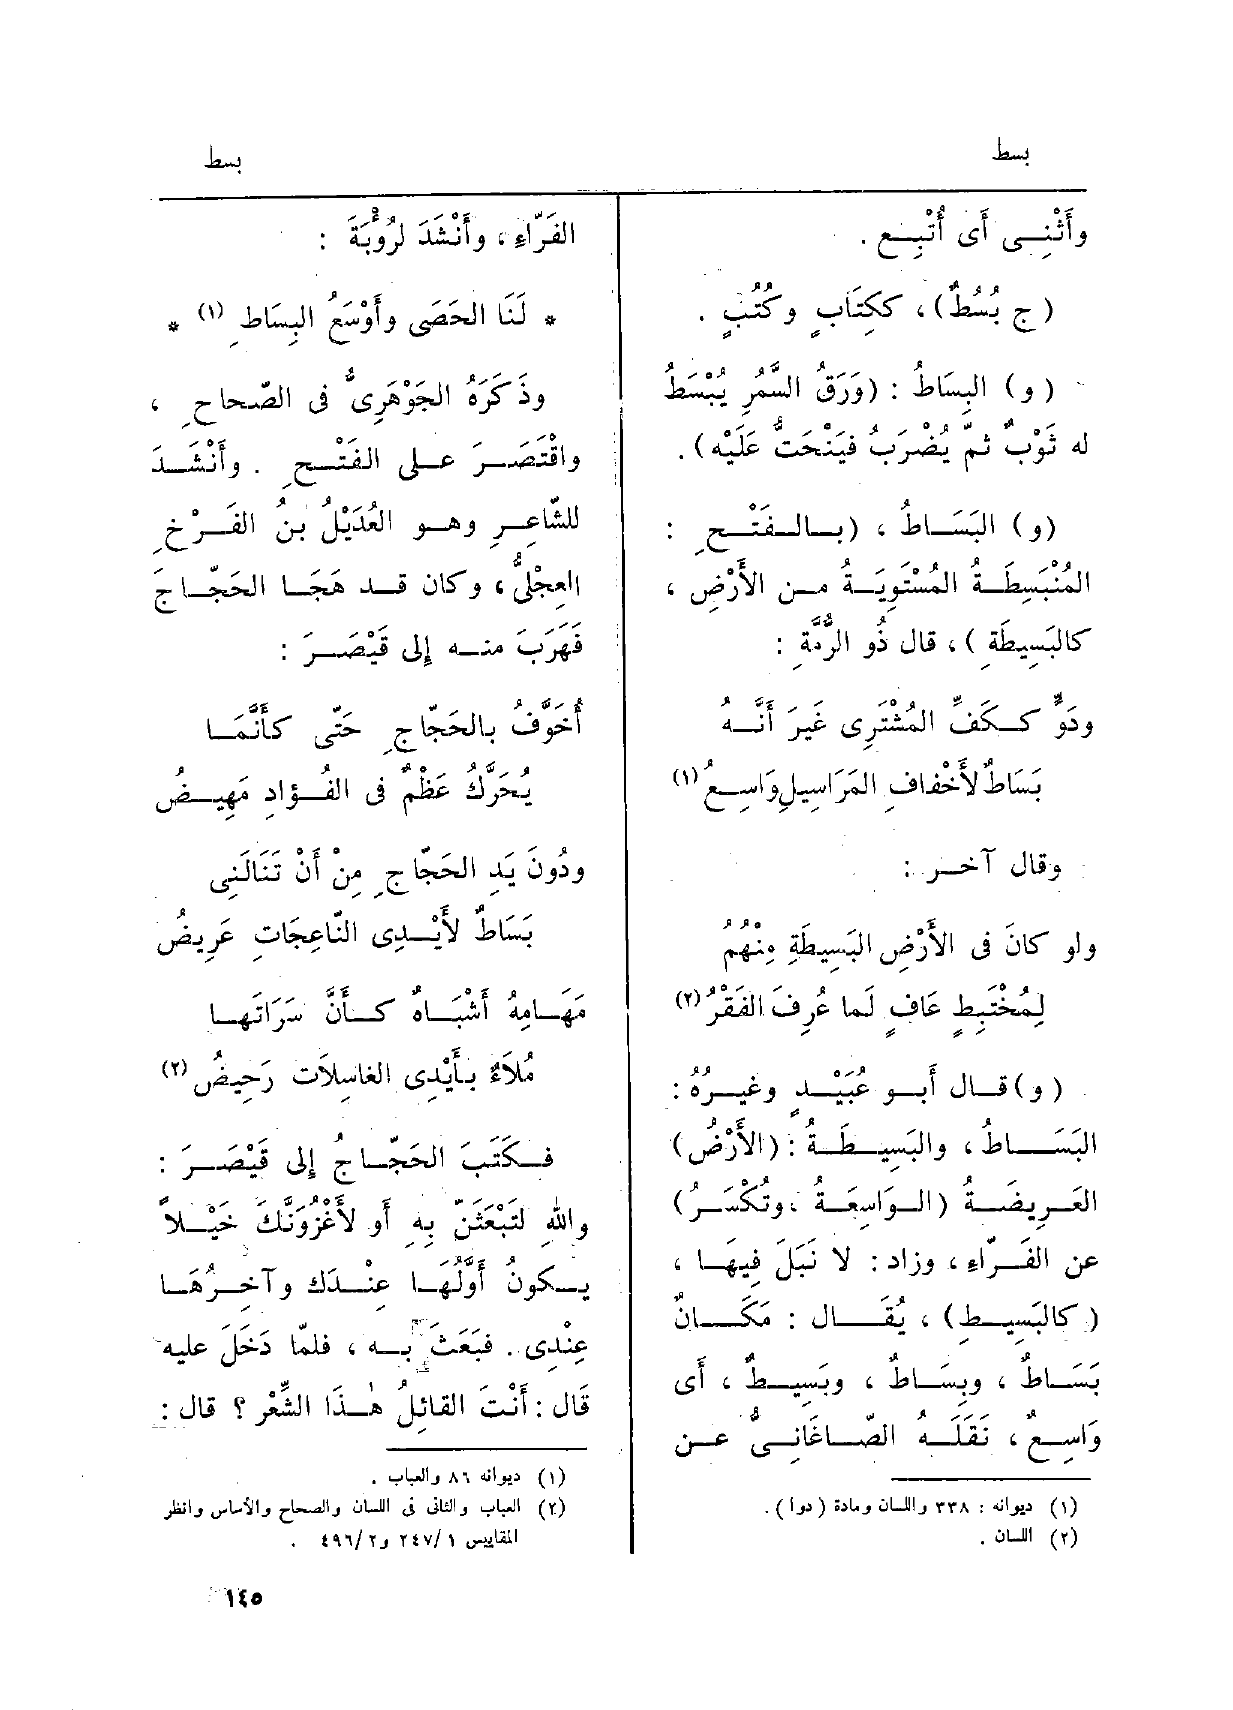 بسط
بسط
وأَثْنِى أَى أُتْبِع .
(ج بُسُطٌ) ، ككِتَابٍ وكُتُبٍ .
(و) البِسَاطُ : (وَرَقُ السَّمُرِ يُبْسَطُ
له ثَوْبٌ ثمّ يُضْرَبُ فيَنْحَتُّ عَلَيْه) .
(و) البَسَاطُ ، (بالفَتْحِ :
المُنْبَسِطَةُ المُسْتَوِيَةُ من الأَرْضِ ،
كالبَسِيطَةِ ) ، قال ذُو الرُّمَّةِ :
ودَوٍّ ككَفِّ المُشْتَرِى غَيرَ أَنَّهُ
بَسَاطٌ لأَخْفافِ المَرَاسِيلِ وَاسِعُ (١)
وقال آخر :
ولو كانَ فى الأَرْضِ البَسِيطَةِ مِنْهُمُ
لِمُخْتَبِطٍ عَافٍ لَما عُرِفَ الفَقْرُ (٢)
(و) قال أَبو عُبَيْدٍ وغيرُهُ :
البَسَاطُ ، والبَسِيطَةُ : (الأَرْضُ)
العَرِيضَةُ (الوَاسِعَةُ ، وتُكْسَرُ)
عن الفَرّاءِ ، وزاد : لا نَبَلَ فِيهَا ،
( كالبَسِيطِ) ، يُقَال : مَكَانٌ
بَسَاطٌ ، وبِسَاطٌ ، وبَسِيطٌ ، أَى
وَاسِعٌ ، نَقَلَهُ الصّاغَانِىُّ عن
(١) ديوانه : ٣٣٨ واللسان ومادة ( دوا ) .
(٢) اللسان .
الفَرّاءِ ، وأَنْشَدَ لرُؤْبَةَ :
* لَنَا الحَصَى وأَوْسَعُ البِسَاطِ (١) *
وذَكَرَهُ الجَوْهَرِىُّ فى الصّحاحِ ،
واقْتَصَرَ على الفَتْحِ . وأَنْشَدَ
للشّاعِرِ وهو العُدَيْلُ بنُ الفَرْخِ
العِجْلِىُّ ، وكان قد هَجَا الحَجّاجَ
فهَرَبَ منه إِلى قَيْصَرَ :
أُخَوَّفُ بالحَجّاجِ حَتّى كأَنَّمَا
يُحَرَّكُ عَظْمٌ فى الفُؤادِ مَهِيضُ
ودُونَ يَدِ الحَجّاجِ مِنْ أَنْ تَنَالَنِى
بَسَاطٌ لأَيْدِى النّاعِجَاتِ عَرِيضُ
مَهَامِهُ أَشْبَاهٌ كأَنَّ سَرَاتَهَا
مُلاَءٌ بأَيْدِى الغاسِلاَتِ رَحِيضُ (٢)
فكَتَبَ الحَجّاجُ إِلى قَيْصَرَ :
واللهِ لتَبْعَثَنّ بِهِ أَو لأَغْزُوَنَّكَ خَيْلاً
يكونُ أَوَّلُهَا عِنْدَك وآخِرُهَا
عِنْدِى . فبَعَثَ به ، فلمّا دَخَلَ عليه
قَال : أَنْتَ القائِلُ هٰذَا الشِّعْر ؟ قال :
(١) ديوانه ٨٦ والعباب .
(٢) العباب والثانى فى اللسان والصحاح والأساس وانظر
المقاييس ١ /٢٤٧ و٢ /٤٩٦ .
١٤٥